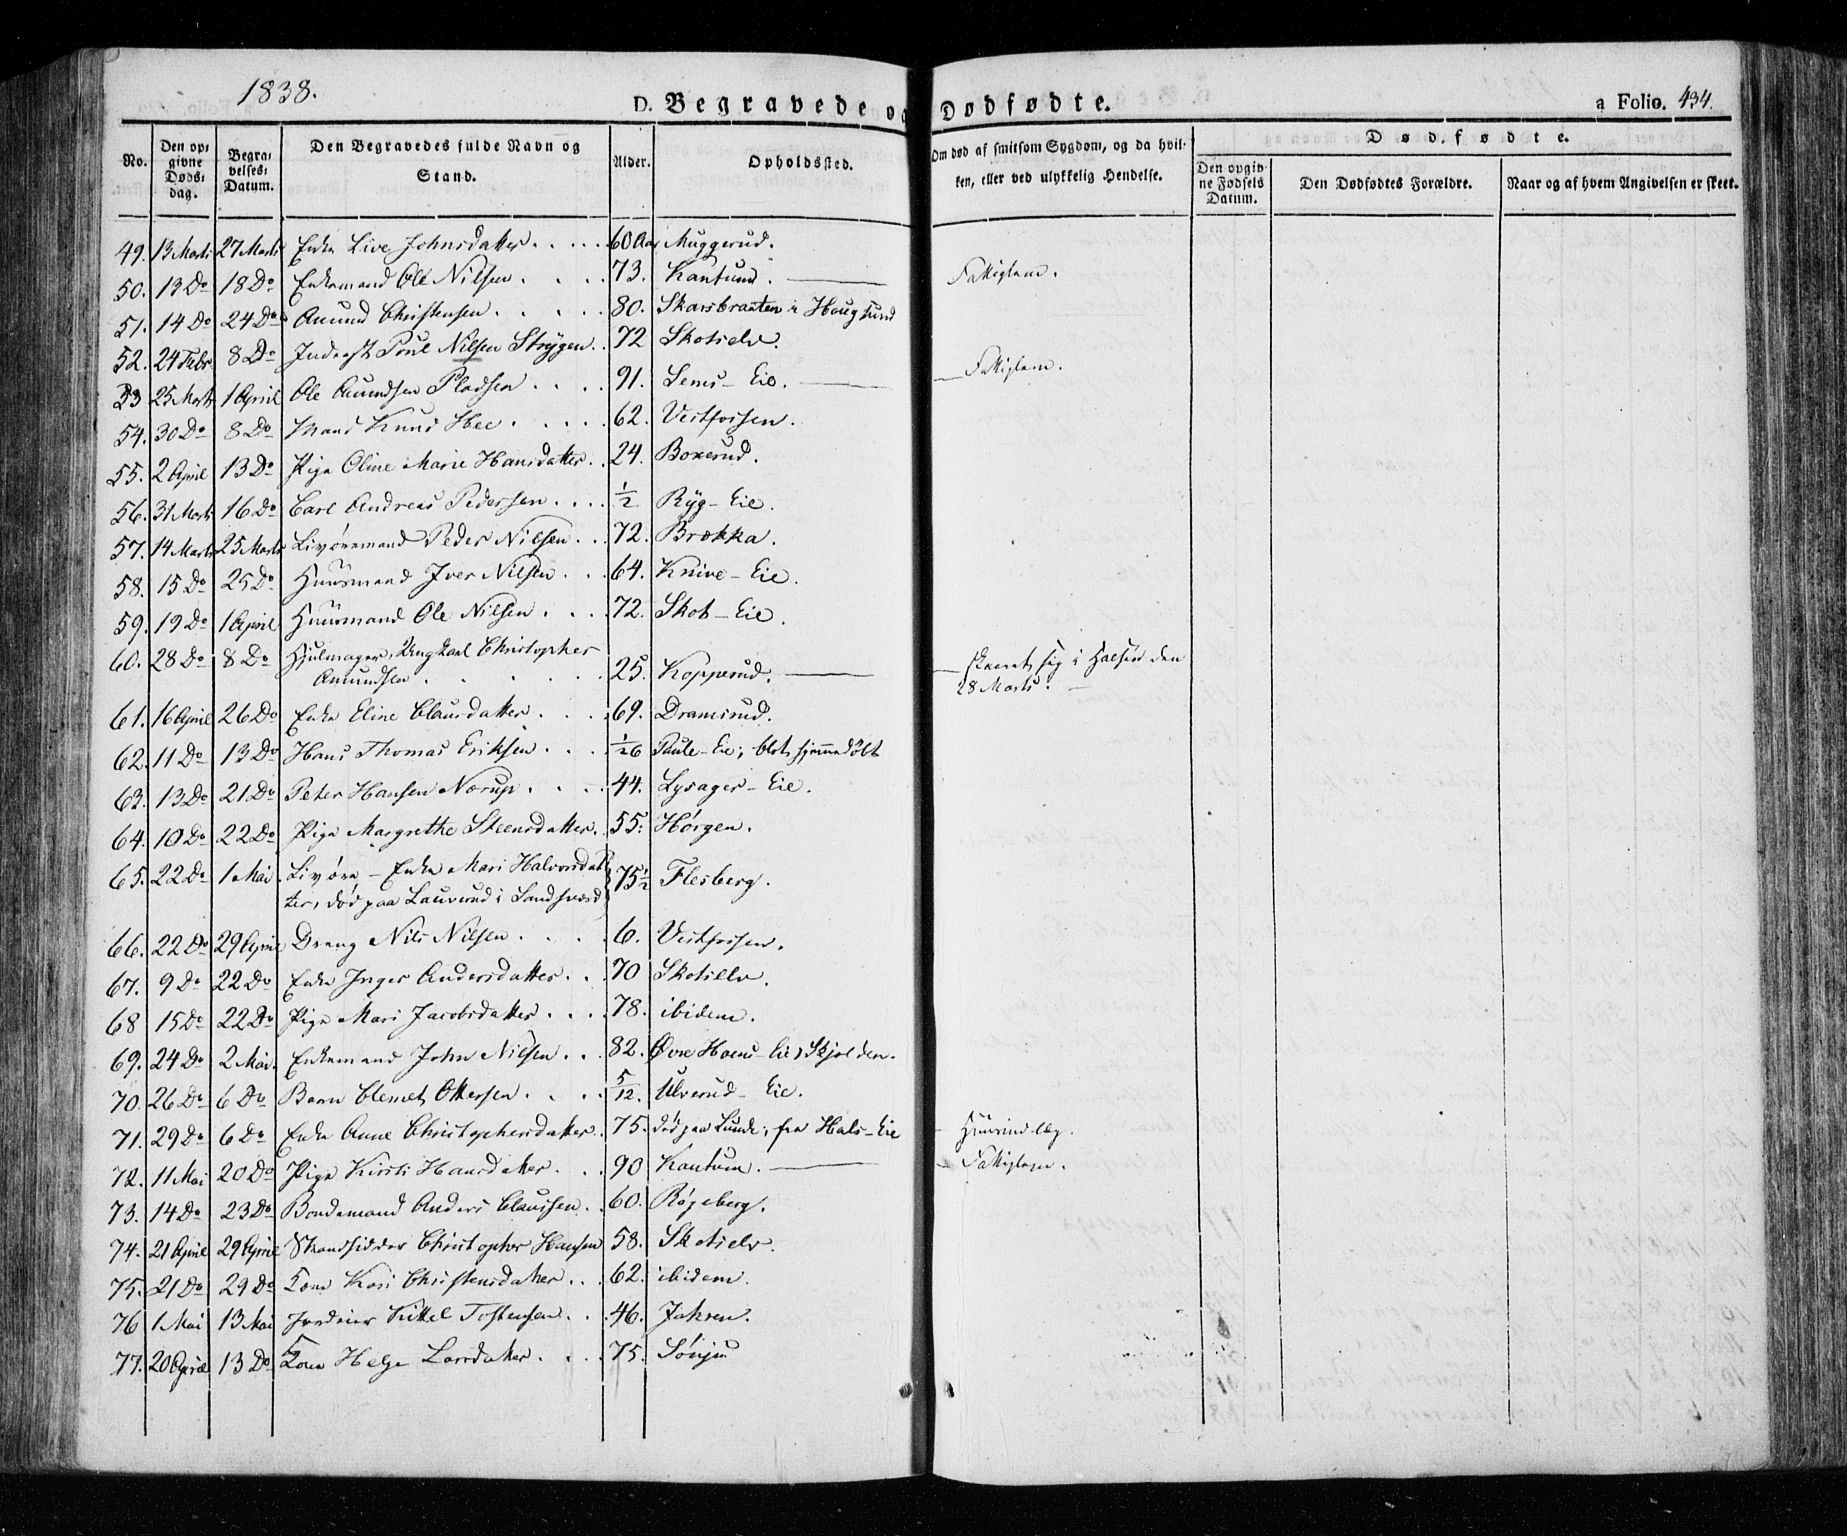 1838.
D. Begravede og Dødfødte.
a Folio. 434.
No.
Den opgivne Dødsdag.
Begravelses-Datum.
Den Begravedes fulde Navn og Stand.
Alder.
Opholdssted.
Om død af smitsom Sygdom, og da hvilken, eller ved ulykkelig Hendelse.
Dødfødte.
Den opgivne Fødsels Datum.
Den Dødfødtes Forældre.
Naar og af hvem Angivelsen er skeet.
49. 13 Marts 27 Marts Enke Live Johnsdatter 60 Aar Muggerud.
50. 13 Do 18 Do Enkemand Ole Nilsen 73. Kantund. Fattiglem.
51. 14 Do 24 Do Amund Christensen 80. Skarsbraaten i Hougsund
52. 24 Febr. 8 Do Inderst Poul Nilsen Strygen 72 Skotselv.
53 25 Marts 1 April Ole Amundsen Pladsen 91. Sems-Eie. Fattiglem.
54. 30 Do 8 Do Mand Knud Hee 62. Vestfossen.
55. 2 April 13 Do Pige Oline Marie Hansdatter 24. Boxerud.
56. 31 Marts 16 Do Carl Andreas Pedersen 1/2 Ryg-Eie.
57. 14 Marts 25 Marts Livøremand Peder Nilsen 72. Brækka.
58. 15 Do 25 Do Huusmand Iver Nilsen 64. Knive-Eie.
59. 19 Do 1 April Huusmand Ole Nilsen 72. Skot-Eie.
60. 28 Do 8 Do Hjulmager, Ungkarl Christopher
Amundsen 25. Kopperud. skaaret sig i Halsen den
28 Marts.
61. 16 April 26 Do Enke Eline Clausdatter 69. Dramsrud.
62. 11 Do 13 Do Hans Thomas Eriksen 1/26 Paule-Eie, blot hjemmedøbt
63. 13 Do 21 Do Peter Hansen Nørup 44. Lysager-Eie.
64. 10 Do 22 Do Pige Margrethe Steensdatter 55. Hørgen.
65. 22 Do 1 Mai Livøre-Enke Mari Halvorsdat-
ter, død paa Lauverud i Sandsværd 75 1/2 Flesberg.
66. 22 Do 29 April Dreng Nils Nilsen 6. Vestfossen.
67. 9 Do 22 Do Enke Inger Andersdatter 70 Skotselv.
68 15 Do 22 Do Pige Mari Jacobsdatter 78. ibidem.
69. 24 Do 2 Mai. Enkemand John Nilsen 82. Øvre Hoens-Eie, Skjolden.
70. 26 Do 6 Do Barn Clemet Ottersen 5/12. Ulverud-Eie.
71. 29 Do 6 Do Enke Anne Christophersdatter 75. død paa Lunde, fra Hals-Eie Huusindlæg.
72. 11 Mai 20 Do Pige Kirsti Hansdatter 90 Kantum. Fattiglem.
73. 14 Do 23 Do Bondemand Anders Claussen 60. Røgeberg.
74. 21 April 29 April Strandsidder Christopher Hansen 58. Skotselv
75. 21 Do 29 Do Kone Kari Christensdatter 62. ibidem.
76 1 Mai 13 Mai Jordeier Kittel Tostensen 46. Jahren.
77. 20 April 13 Do Kone Helge Larsdatter 75. Sønju